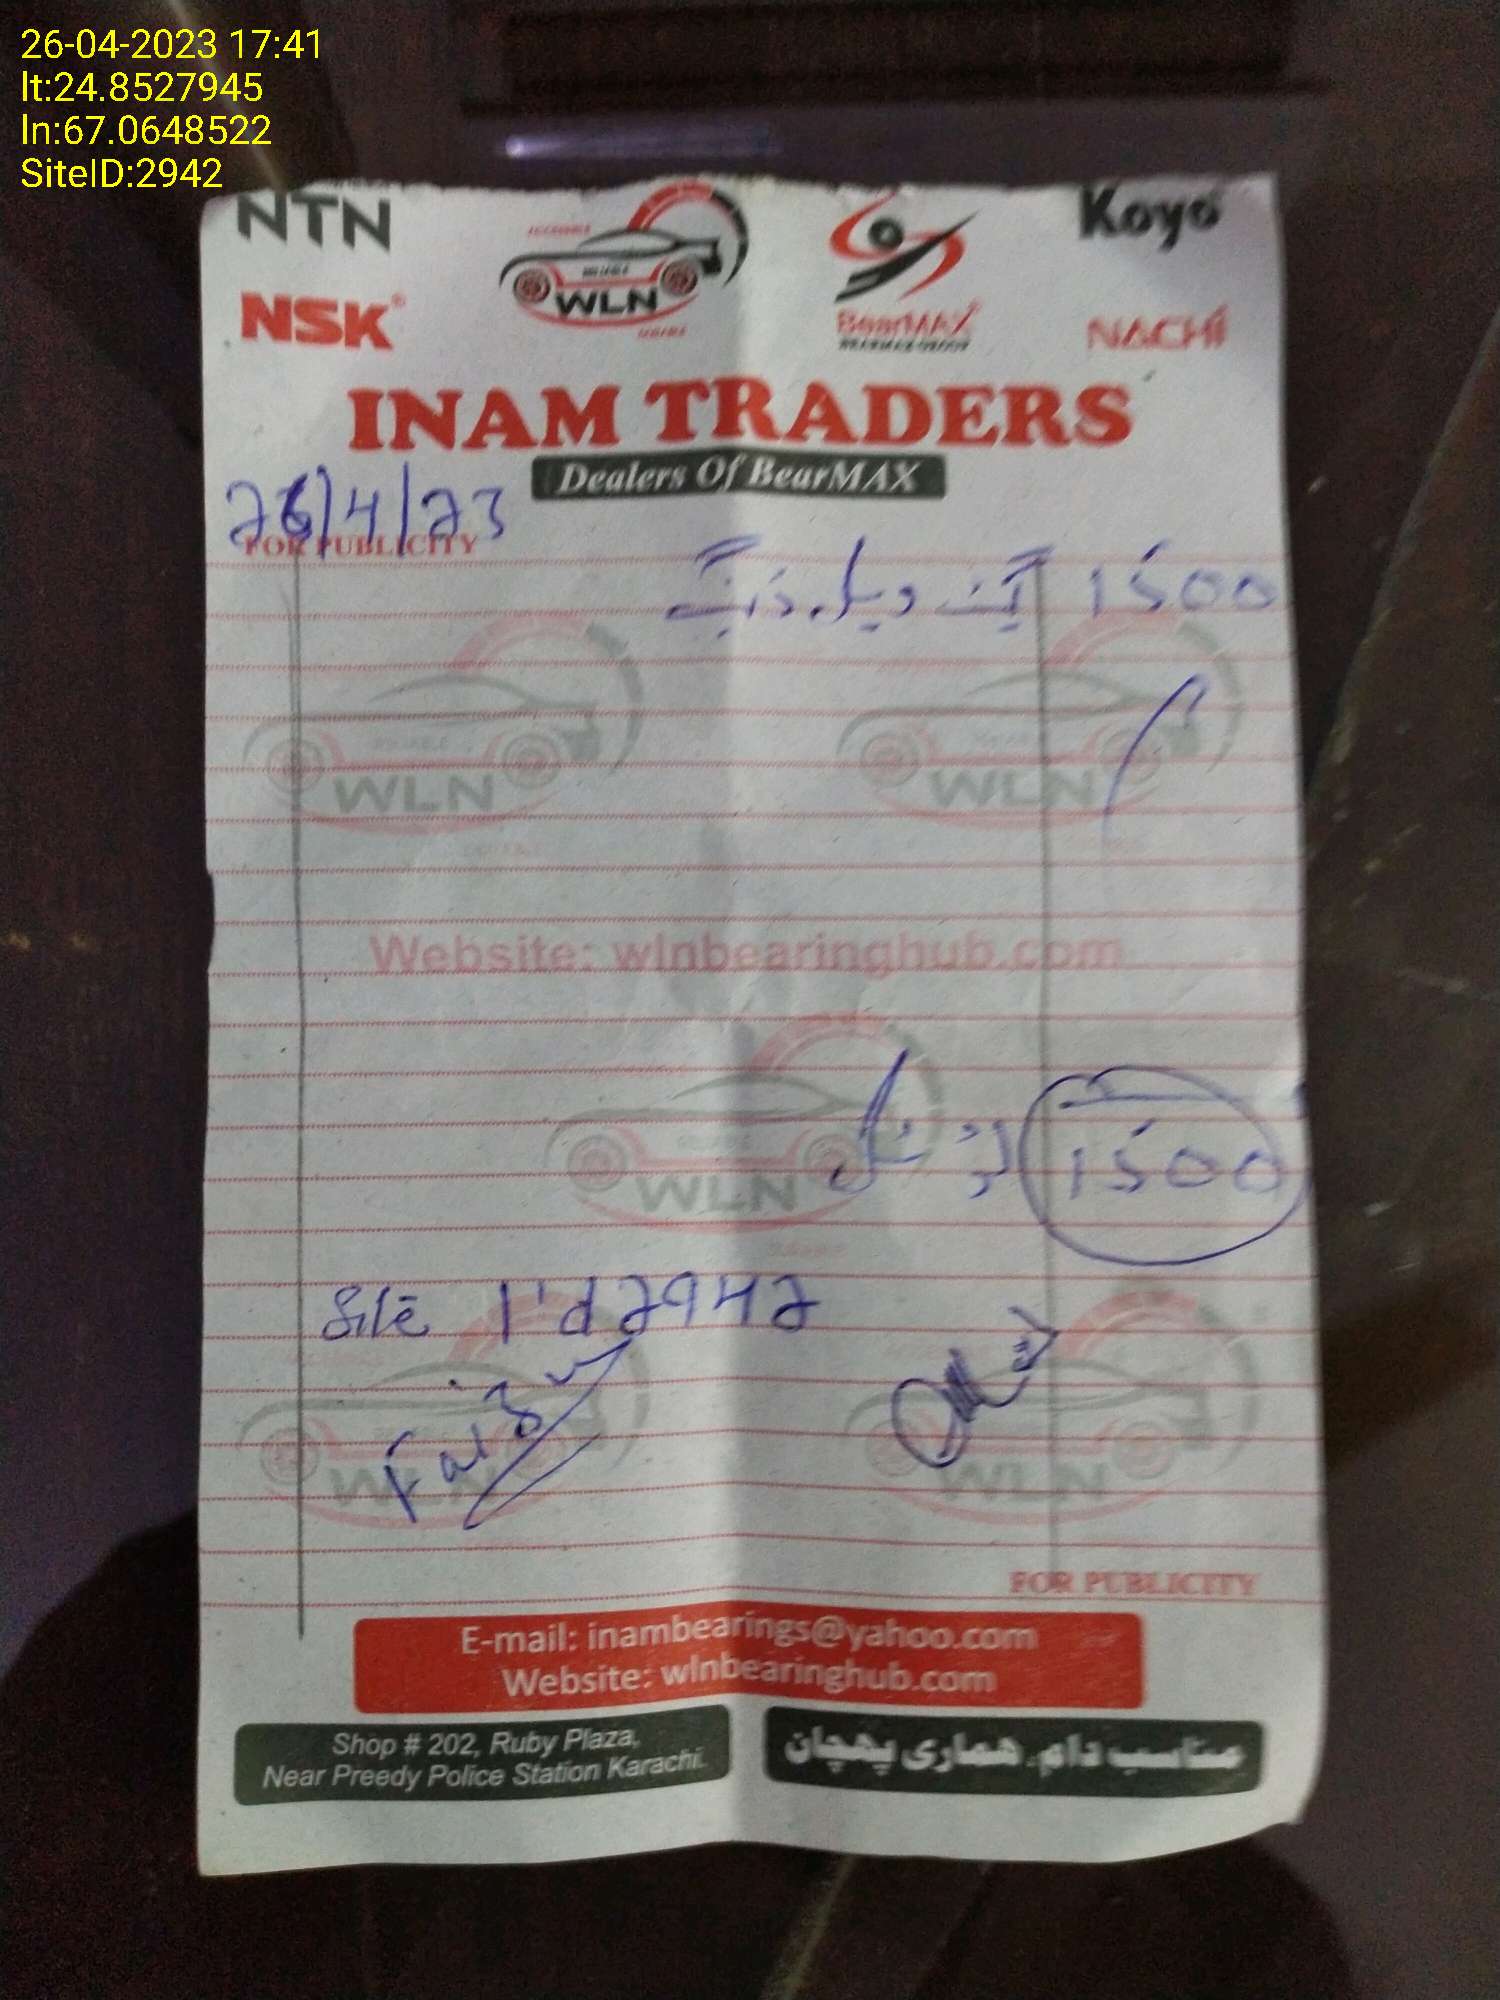 26-04-2023 17:41
lt:24.8527945
ln:67.0648522
SiteID:2942
NTN
WLN
Koyo
NSK
BearMAX
BEARMAX GROUP
NACHI
INAM TRADERS
Dealers Of BearMAX
26/4/23
FOR PUBLICITY
1500
WLN
WLN
Website: wlnbearinghub.com
WLN
ٹوٹل 1500
Site I'd 2942
WLN
WLN
FOR PUBLICITY
E-mail: inambearings@yahoo.com
Website: wlnbearinghub.com
Shop # 202, Ruby Plaza,
Near Preedy Police Station Karachi.
مناسب دام، ھماری پھچان